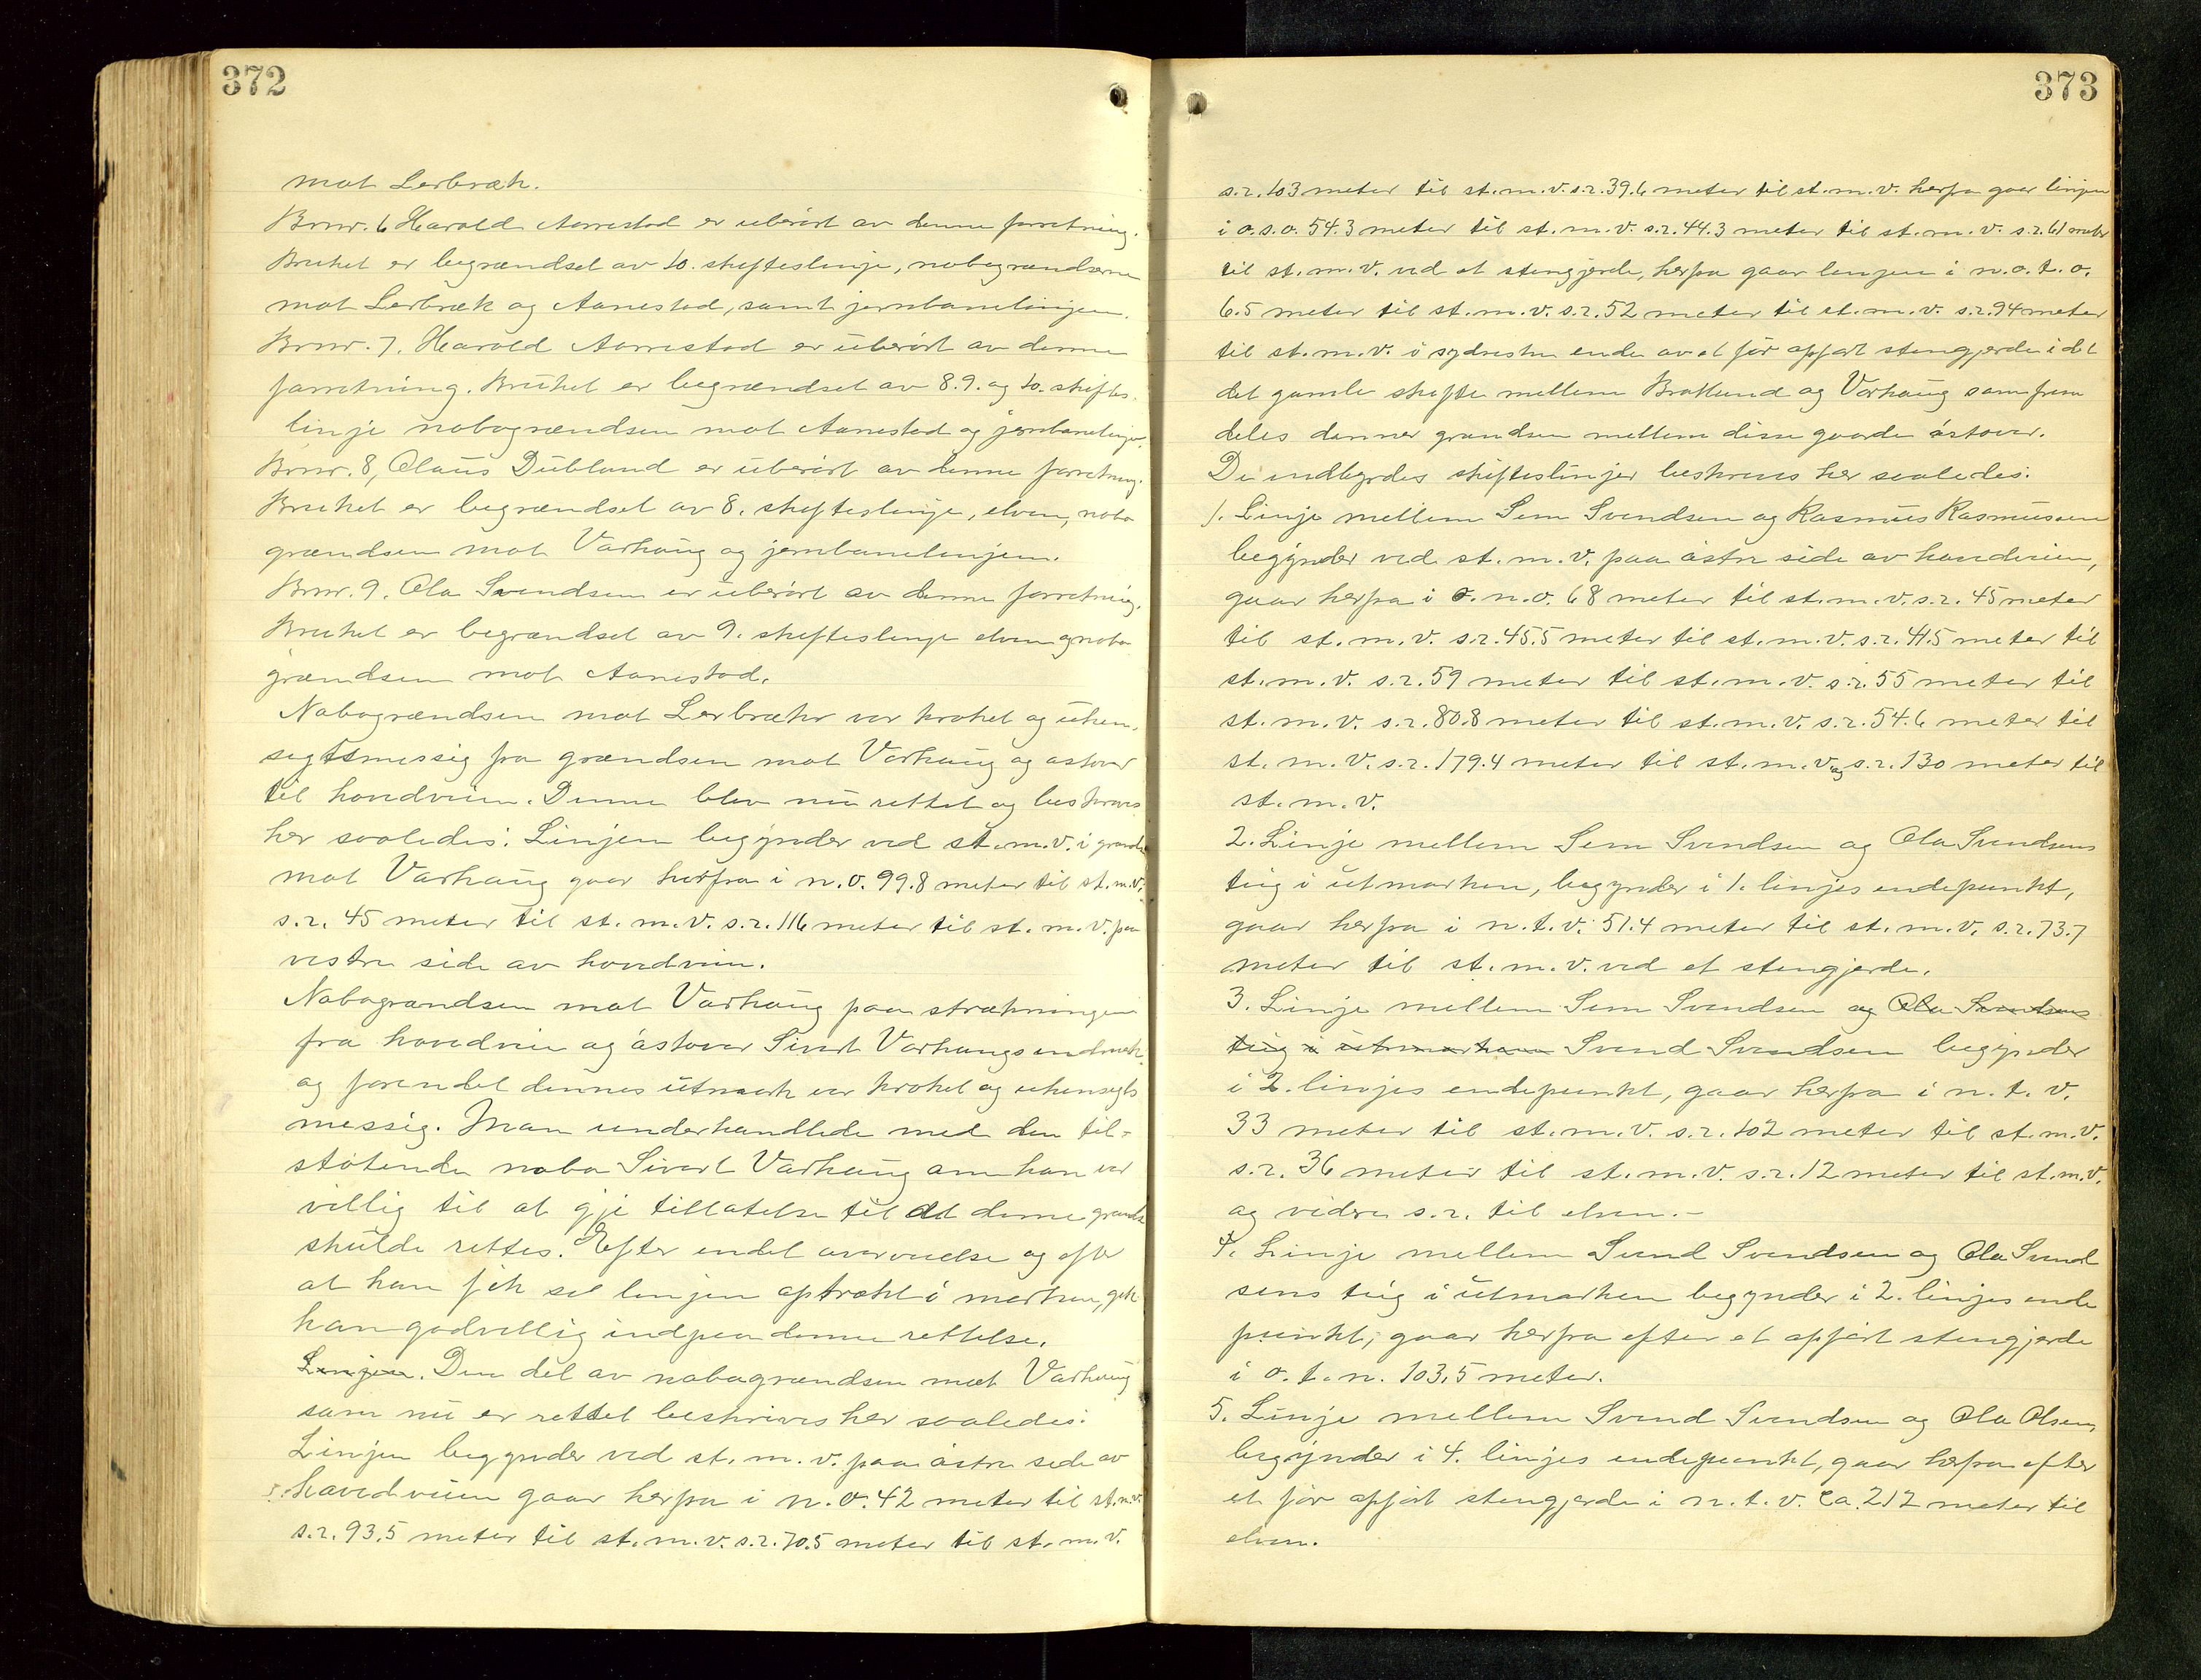 372
mot Lerbræk.
Brnr. 6 Harald Aarrestad er uberört av denne forretning.
Bruket er begrændset av 10. skifteslinje, nabogrændserne
mot Lerbræk og Aanestad, samt jernbanelinjen.
Brnr. 7. Harald Aarrestad er uberört av denne
forretning. Bruket er begrændset av 8. 9. og 10. skiftes-
linje nabogrændsen mot Aanestad og jernbanelinjen.
Brnr. 8, Olaus Dubland er uberört av denne forretning.
Bruket er begrændset av 8. skifteslinje, elven, nabo
grændsen mot Varhaug og jernbanelinjen.
Brnr. 9. Ola Svendsen er uberört av denne forretning.
Bruket er begrændset av 9. skifteslinje elven og nabo
grændsen mot Aanestad.
Nabogrændsen mot Lerbræk var kroket og uhen-
sigtsmessig fra grændsen mot Varhaug og östover
til hovedveien. Denne blev nu rettet og beskrives
her saaledes: Linjen begynder ved st. m. v. i grændse
mot Varhaug gaar herfra i n. o. 99.8 meter til st. m. v.
s. r. 45 meter til st. m. v. s. r. 116 meter til st. m. v. paa
vestre side av hovedveien.
Nabogrændsen mot Varhaug paa strækningen
fra hovedveien og östover Sivert Varhaugs indmark
og forendel dennes utmark var kroket og uhensigts
messig. Man underhandlede med den til-
stötende nabo Sivert Varhaug om han var
villig til at gje tillatelse til at denne grændse
skulde rettes. Efter endel overveielse og efter
at han fik se linjen optrækt i marken, gik
han godvillig ind paa denne rettelse.
Linjen. Den del av nabogrændsen mot Varhaug
som nu er rettet beskrives her saaledes:
Linjen begynder ved st. m. v. paa östre side av
hovedveien gaar herfra i n. o. 42 meter til st. m. v.
s. r. 93.5 meter til st. m. v. s. r. 70.5 meter til st. m. v.
373
s. r. 103 meter til st. m. v. s. r. 39.6 meter til st. m. v. herfra gaar linjen
i o. s. o. 54.3 meter til st. m. v. s. r. 44.3 meter til st. m. v. s. r. 61 meter
til st. m. v. ved et stengjerde, herfra gaar linjen i n. o. t. o.
6.5 meter til st. m. v. s. r. 52 meter til st. m. v. s. r. 94 meter
til st. m. v. i sydvestre ende av et för opfört stengjerde i det
det gamle skifte mellem Bratland og Varhaug som frem
deles danner grændsen mellem disse gaarde östover.
De indbyrdes skifteslinjer beskrives her saaledes:
1. Linje mellem Sem Svendsen og Rasmus Rasmussen
begynder ved st. m. v. paa östre side av hovedveien,
gaar herfra i o. n. o. 68 meter til st. m. v. s. r. 45 meter
til st. m. v. s. r. 45.5 meter til st. m. v. s. r. 41.5 meter til
st. m. v. s. r. 59 meter til st. m. v. s. r. 55 meter til
st. m. v. s. r. 80.8 meter til st. m. v. s. r. 54.6 meter til
st. m. v. s. r. 179.4 meter til st. m. v. og s. r. 130 meter til
st. m. v.
2. Linje mellem Sem Svendsen og Ola Svendsens
teig i utmarken, begynder i 1. linjes endepunkt,
gaar herfra i n. t. v. 51.4 meter til st. m. v. s. r. 73.7
meter til st. m. v. ved et stengjerde.
3. Linje mellem Sem Svendsen og Ola Svendsens
teig i utmarken Svend Svendsen begynder
i 2. linjes endepunkt, gaar herfra i n. t. v.
33 meter til st. m. v. s. r. 102 meter til st. m. v.
s. r. 36 meter til st. m. v. s. r. 12 meter til st. m. v.
og videre s. r. til elven. -
4. Linje mellem Svend Svendsen og Ola Svend
sens teig i utmarken begynder i 2. linjes ende
punkt, gaar herfra efter et opfört stengjerde
i o. t. n. 103,5 meter.
5. Linje mellem Svend Svendsen og Ola Olsen,
begynder i 4. linjes endepunkt, gaar herfra efter
et för opfört stengjerde i n. t. v. ca. 212 meter til
elven.